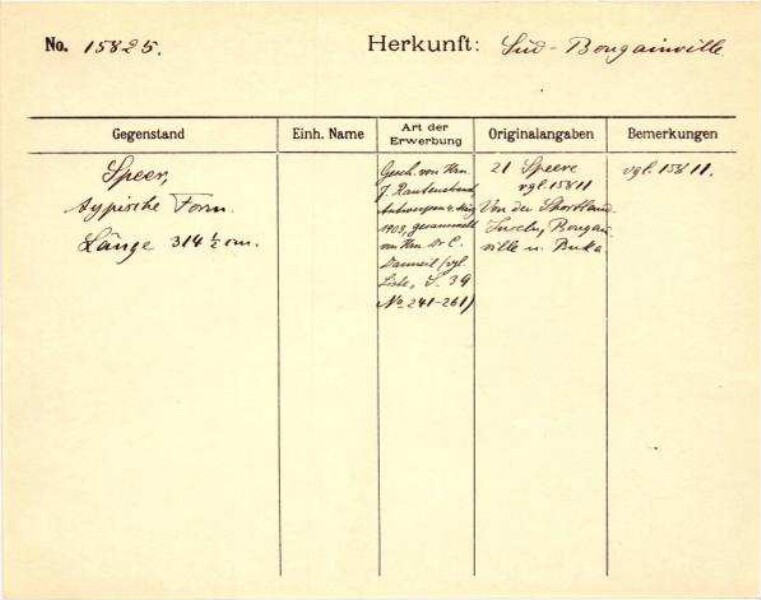 No. 15825. Herkunft: Süd-Bougainville
Gegenstand Einh. Name Art der Erwerbung Originalangaben Bemerkungen
Speer,
typische Form.
Länge 314 ½ cm.
Gesch. von Hrn
J. Rautenstrauch
Antwerpen 4. März
1909, gesammelt
von Hrn Dr C.
(vgl.
Liste, S. 39
No 241-261)
21 Speere
vgl. 15811
Von der Shortland
Inseln, Bougain
ville u. Buka.
vgl. 15811.